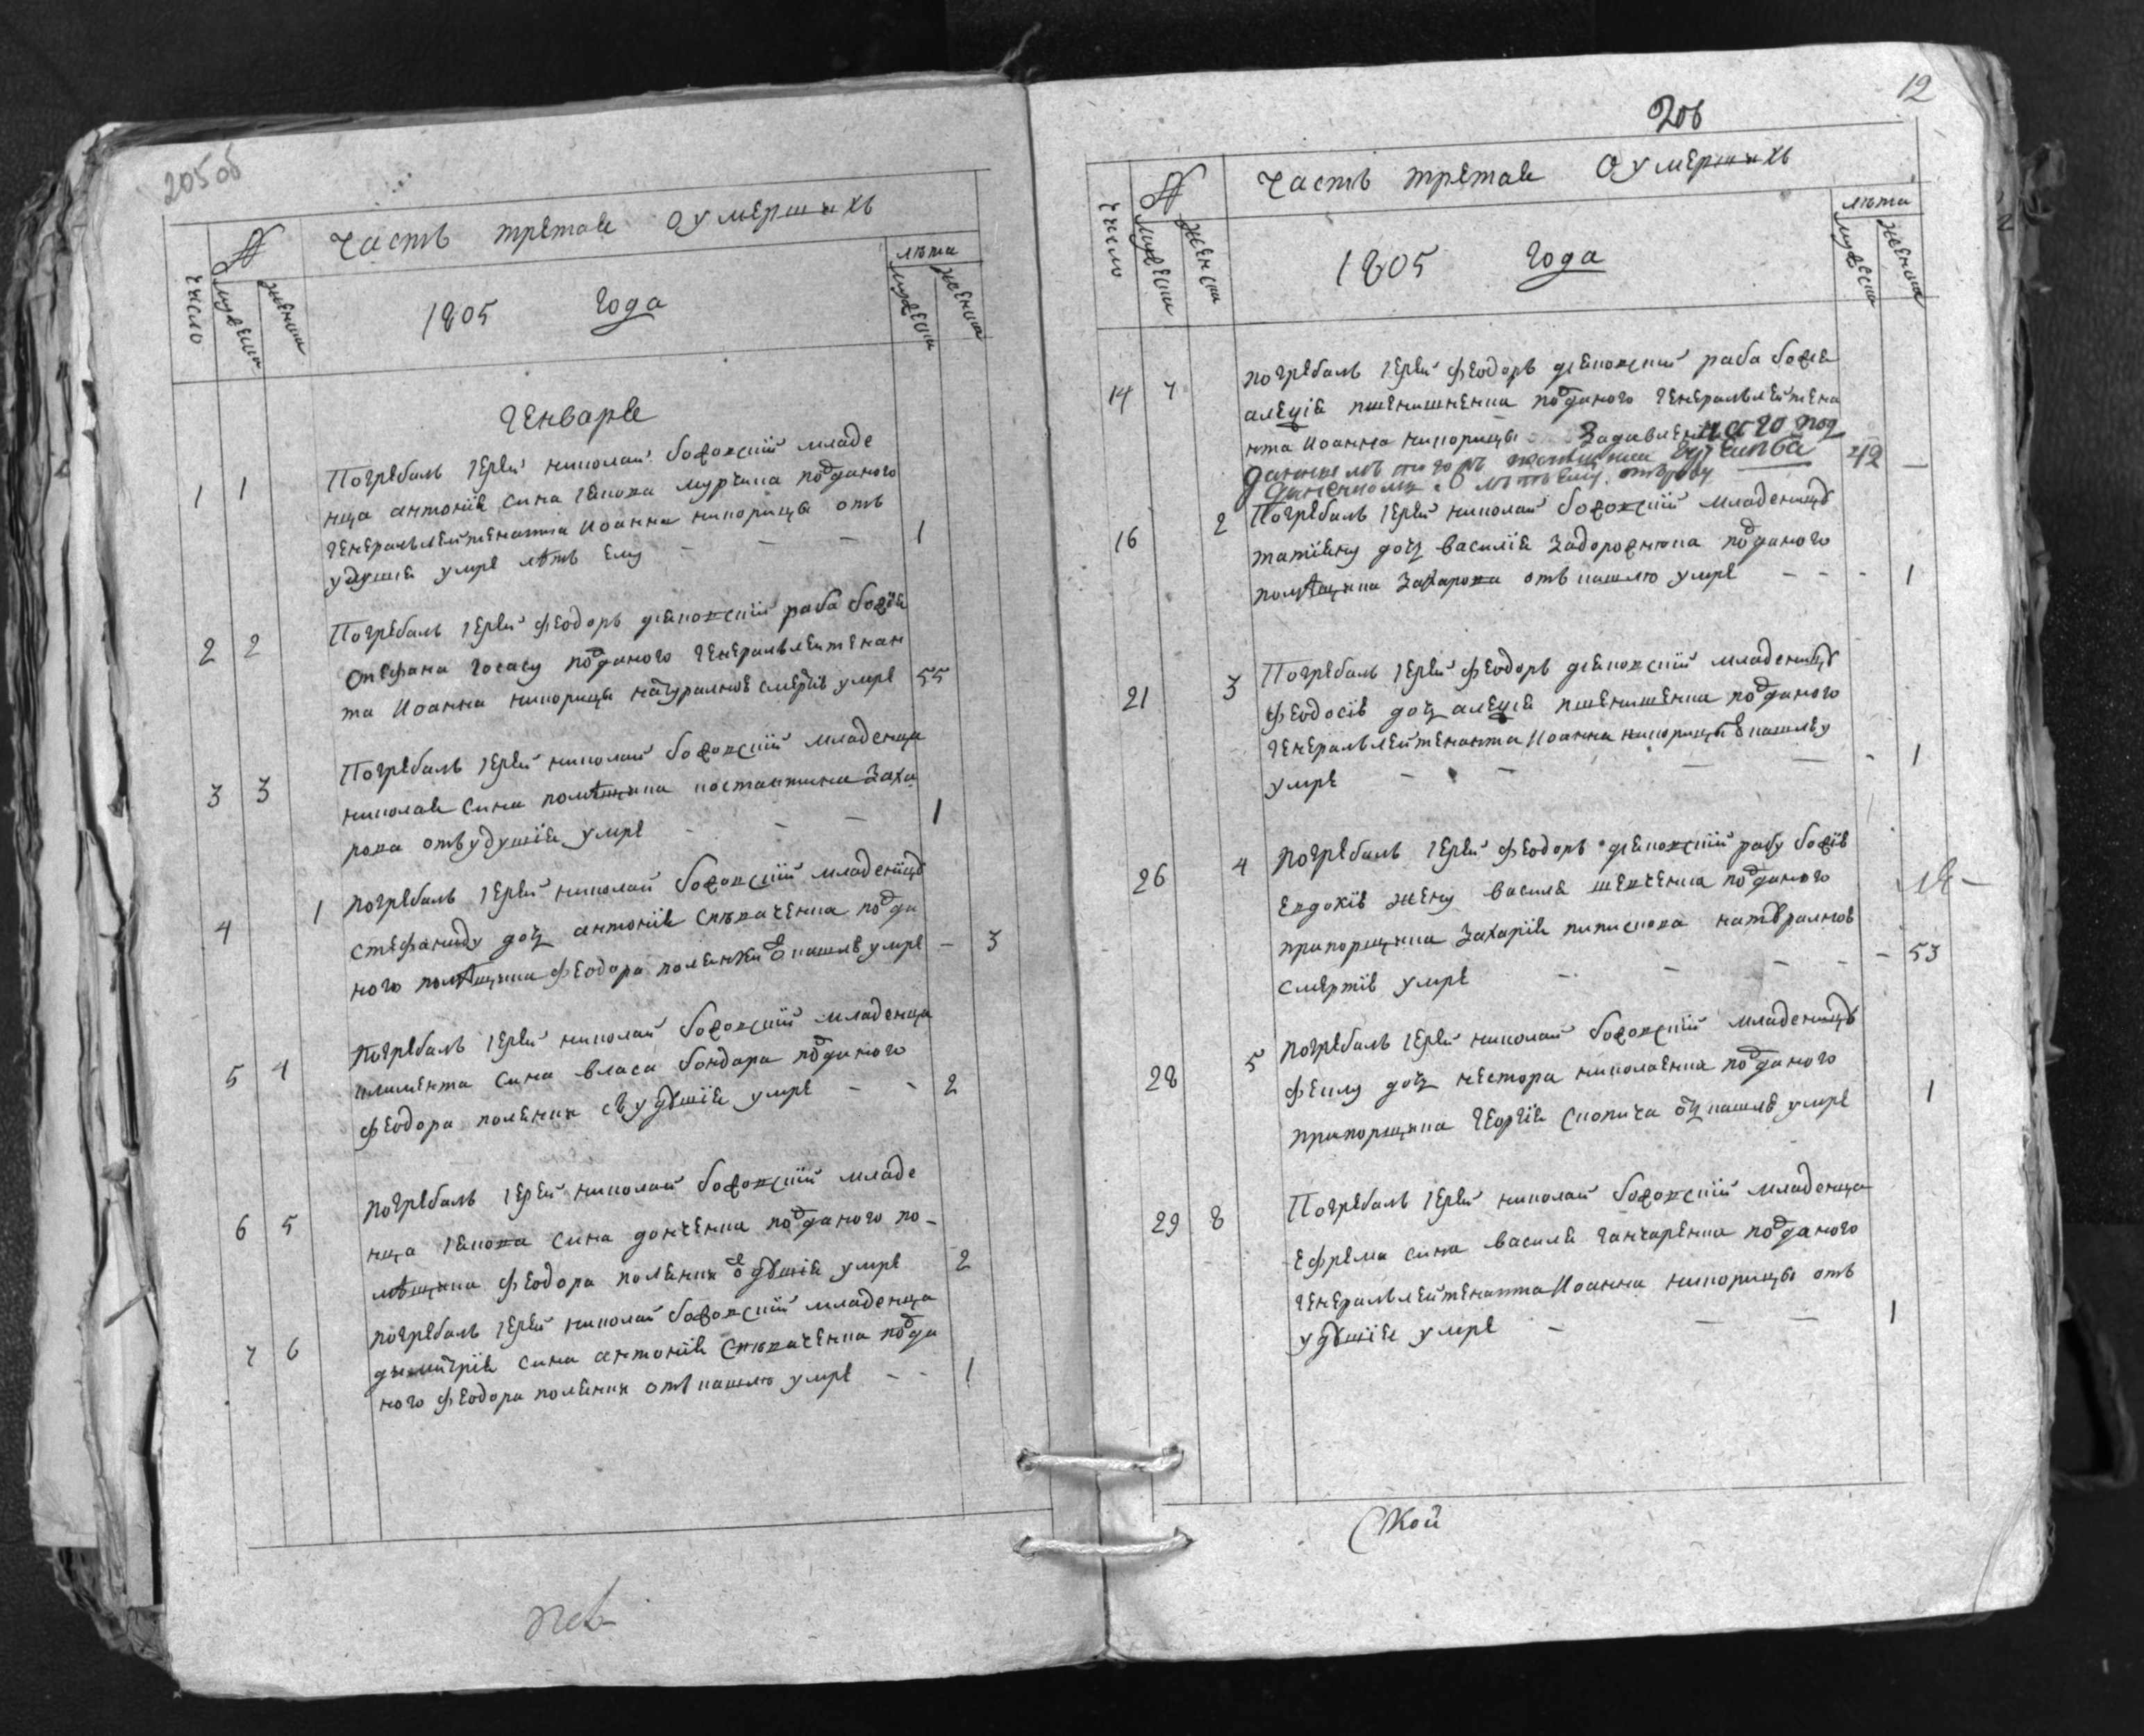 205 об
№
Часть третая О умершихъ
число
мужеска
женска
1805 Года
лѣта
мужеска
женска
Генваря
1 1 Погребалъ Іерей николай божокскій младе
нца антонія сина Іякова мурчина подданого
Генералълейтенанта Иоанна никорицы отъ
удушия умре лѣтъ ему - - - 1
2 2 Погребалъ Іерей Феодоръ раба божія
Стефана подданого Генералълейтенан
та Иоанна никорицы натуралное смертію умре 55
3 3 Погребалъ Іерей николай божокскій младенца
николая сина помѣщика костантина Заха
рова отъ удушія умре - - - 1
4 1 погребалъ Іерей николай божокскій младеницу
стефаниду дочь антонія спѣваченка подда
ного помѣщика Феодора отъ кашлю умре - 3
5 4 Погребалъ Іерей николай божокскій младенца
климента сина власа бондара подданого
Феодора съ удушія умре - - 2
6 5 погребалъ Іерей николай божокскій младе
нца Іякова сина донченка подданого по-
мѣщика Феодора отъ удушія умре 2
7 6 погребалъ Іерей николай божокскій младенца
димитрія сина антонія спѣваченка подда
ного Феодора отъ кашлю умре - - 1
206
12
№
Часть третая О умершихъ
число
мужеска
женска
1805 Года
лѣта
мужеска
женска
14 7 погребалъ Іерей Феодоръ раба божия
алеѯія пшенишненка подданого Генералълейтена
нта Иоанна никорицы Задавленнаго под
42 -
16 2 Погребалъ Іерей николай божокскій младеницу
татіяну дочь василія Задорожнюка подданого
помѣщика Захарова отъ кашлю умре - - - 1
21 3 Погребалъ Іерей Феодоръ младеницу
Феодосію дочь алеѯія пшенишенка подданого
Генералълейтенанта Иоанна никорицы отъ кашлеу
умре - - - - - 1
26 4 Погребалъ Іерей Феодоръ рабу божію
Евдокію жену василя шевченка подданого
прапорщика Захарія натуралною
смертію умре - - - - - 53
28 5 Погребалъ Іерей николай божокскій младеницу
дочь нестора николаенка подданого
прапорщика Георгія отъ кашлю умре 1
29 8 Погребалъ Іерей николай божокскій младенца
Ефрема сина василя ганчаренка подданого
Генералълейтенанта Иоанна никорицы отъ
удушія умре - - - 1
ской